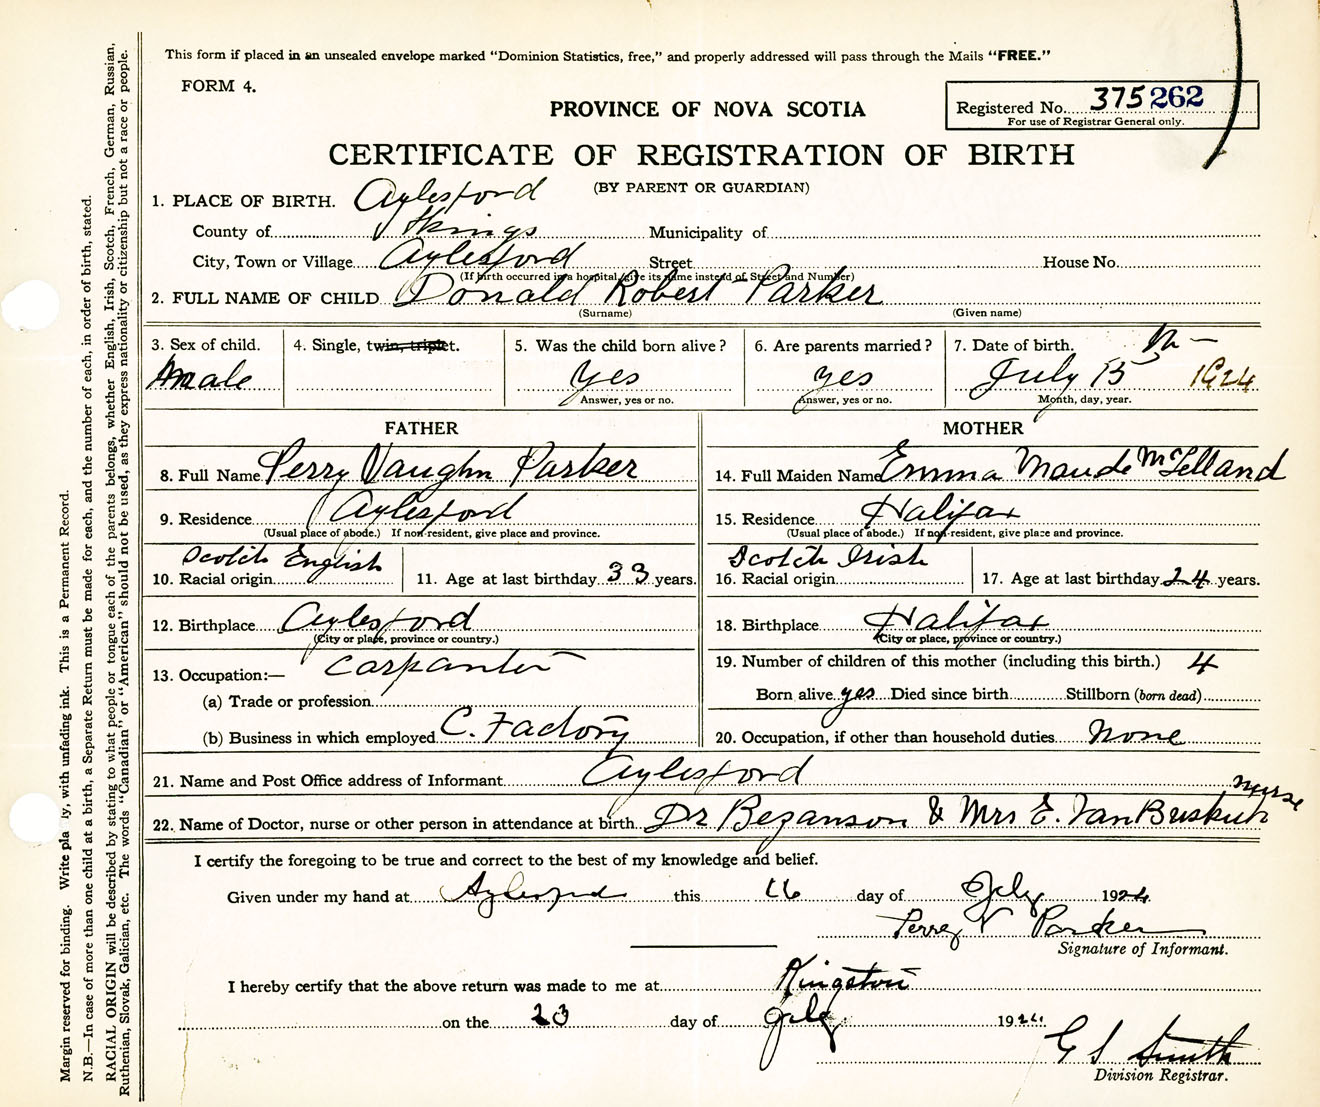 This form if placed in an unsealed envelope marked "Dominion Statistics, free," and properly addressed will pass through the Mails "FREE."
FORM 4.
Registered No. 375262
For use of Registrar General only.
PROVINCE OF NOVA SCOTIA
CERTIFICATE OF REGISTRATION OF BIRTH
(BY PARENT OR GUARDIAN)
1. PLACE OF BIRTH. Aylesford
County of Kings Municipality of
City, Town or Village Aylesford Street House No.
(If birth occurred in a hospital, give its name instead of Street and Number)
2. FULL NAME OF CHILD Donald Robert Parker
(Surname) (Given name)
3. Sex of child. 4. Single, twin, triplet. 5. Was the child born alive? 6. Are parents married? 7. Date of birth.
Male yes yes July 15 1924
Answer, yes or no. Answer, yes or no. Month, day, year.
FATHER MOTHER
8. Full Name Perry Vaughn Parker 14. Full Maiden Name Emma Maude McLelland
9. Residence Aylesford 15. Residence Halifax
(Usual place of abode.) If non-resident, give place and province. (Usual place of abode.) If non-resident, give place and province.
10. Racial origin Scotch English 11. Age at last birthday 33 years. 16. Racial origin Scotch Irish 17. Age at last birthday 24 years.
12. Birthplace Aylesford 18. Birthplace Halifax
(City or place, province or country.) (City or place, province or country.)
13. Occupation:— Carpanter 19. Number of children of this mother (including this birth.) 4
(a) Trade or profession Born alive yes Died since birth Stillborn (born dead)
(b) Business in which employed C. Factory 20. Occupation, if other than household duties None
21. Name and Post Office address of Informant Aylesford
22. Name of Doctor, nurse or other person in attendance at birth Dr Bezanson & Mrs E. VanBuskirk nurse
I certify the foregoing to be true and correct to the best of my knowledge and belief.
Given under my hand at Aylesford this 16 day of July 1924.
Perrey V Parker
Signature of Informant.
I hereby certify that the above return was made to me at Kingston
on the 23 day of July 1924.
G S Smith
Division Registrar.
Margin reserved for binding. Write pla ly, with unfading ink. This is a Permanent Record.
N.B.—In case of more than one child at a birth, a Separate Return must be made for each, and the number of each, in order of birth, stated.
RACIAL ORIGIN will be described by stating to what people or tongue each of the parents belongs, whether English, Irish, Scotch, French, German, Russian,
Ruthenian, Slovak, Galician, etc. The words "Canadian" or "American" should not be used, as they express nationality or citizenship but not a race or people.